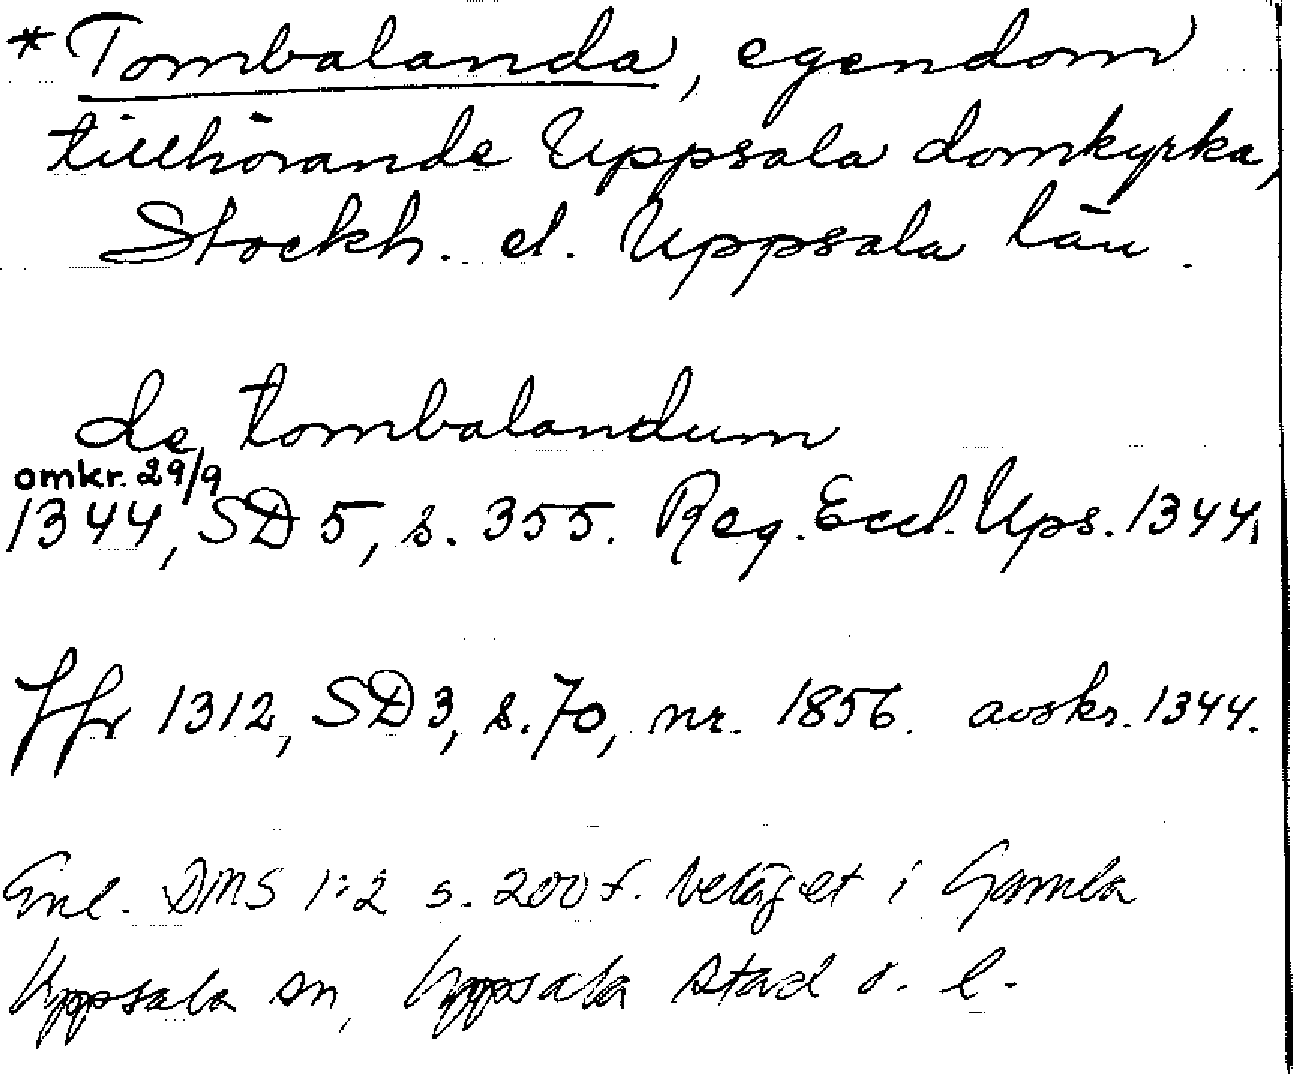 *Tombalanda, egendom
tillhörande Uppsala domkyrka,
Stockh. el. Uppsala län.
de tombalandum
omkr. 29/9
1344, SD 5, s. 355. Reg. Eccl. Ups. 1344,
Jfr 1312, SD 3, s. 70, nr. 1856. avskr. 1344.
Enl. DMS 1:2 s. 200 f. beläget i Gamla
Uppsala sn, Uppsala stad o. l.